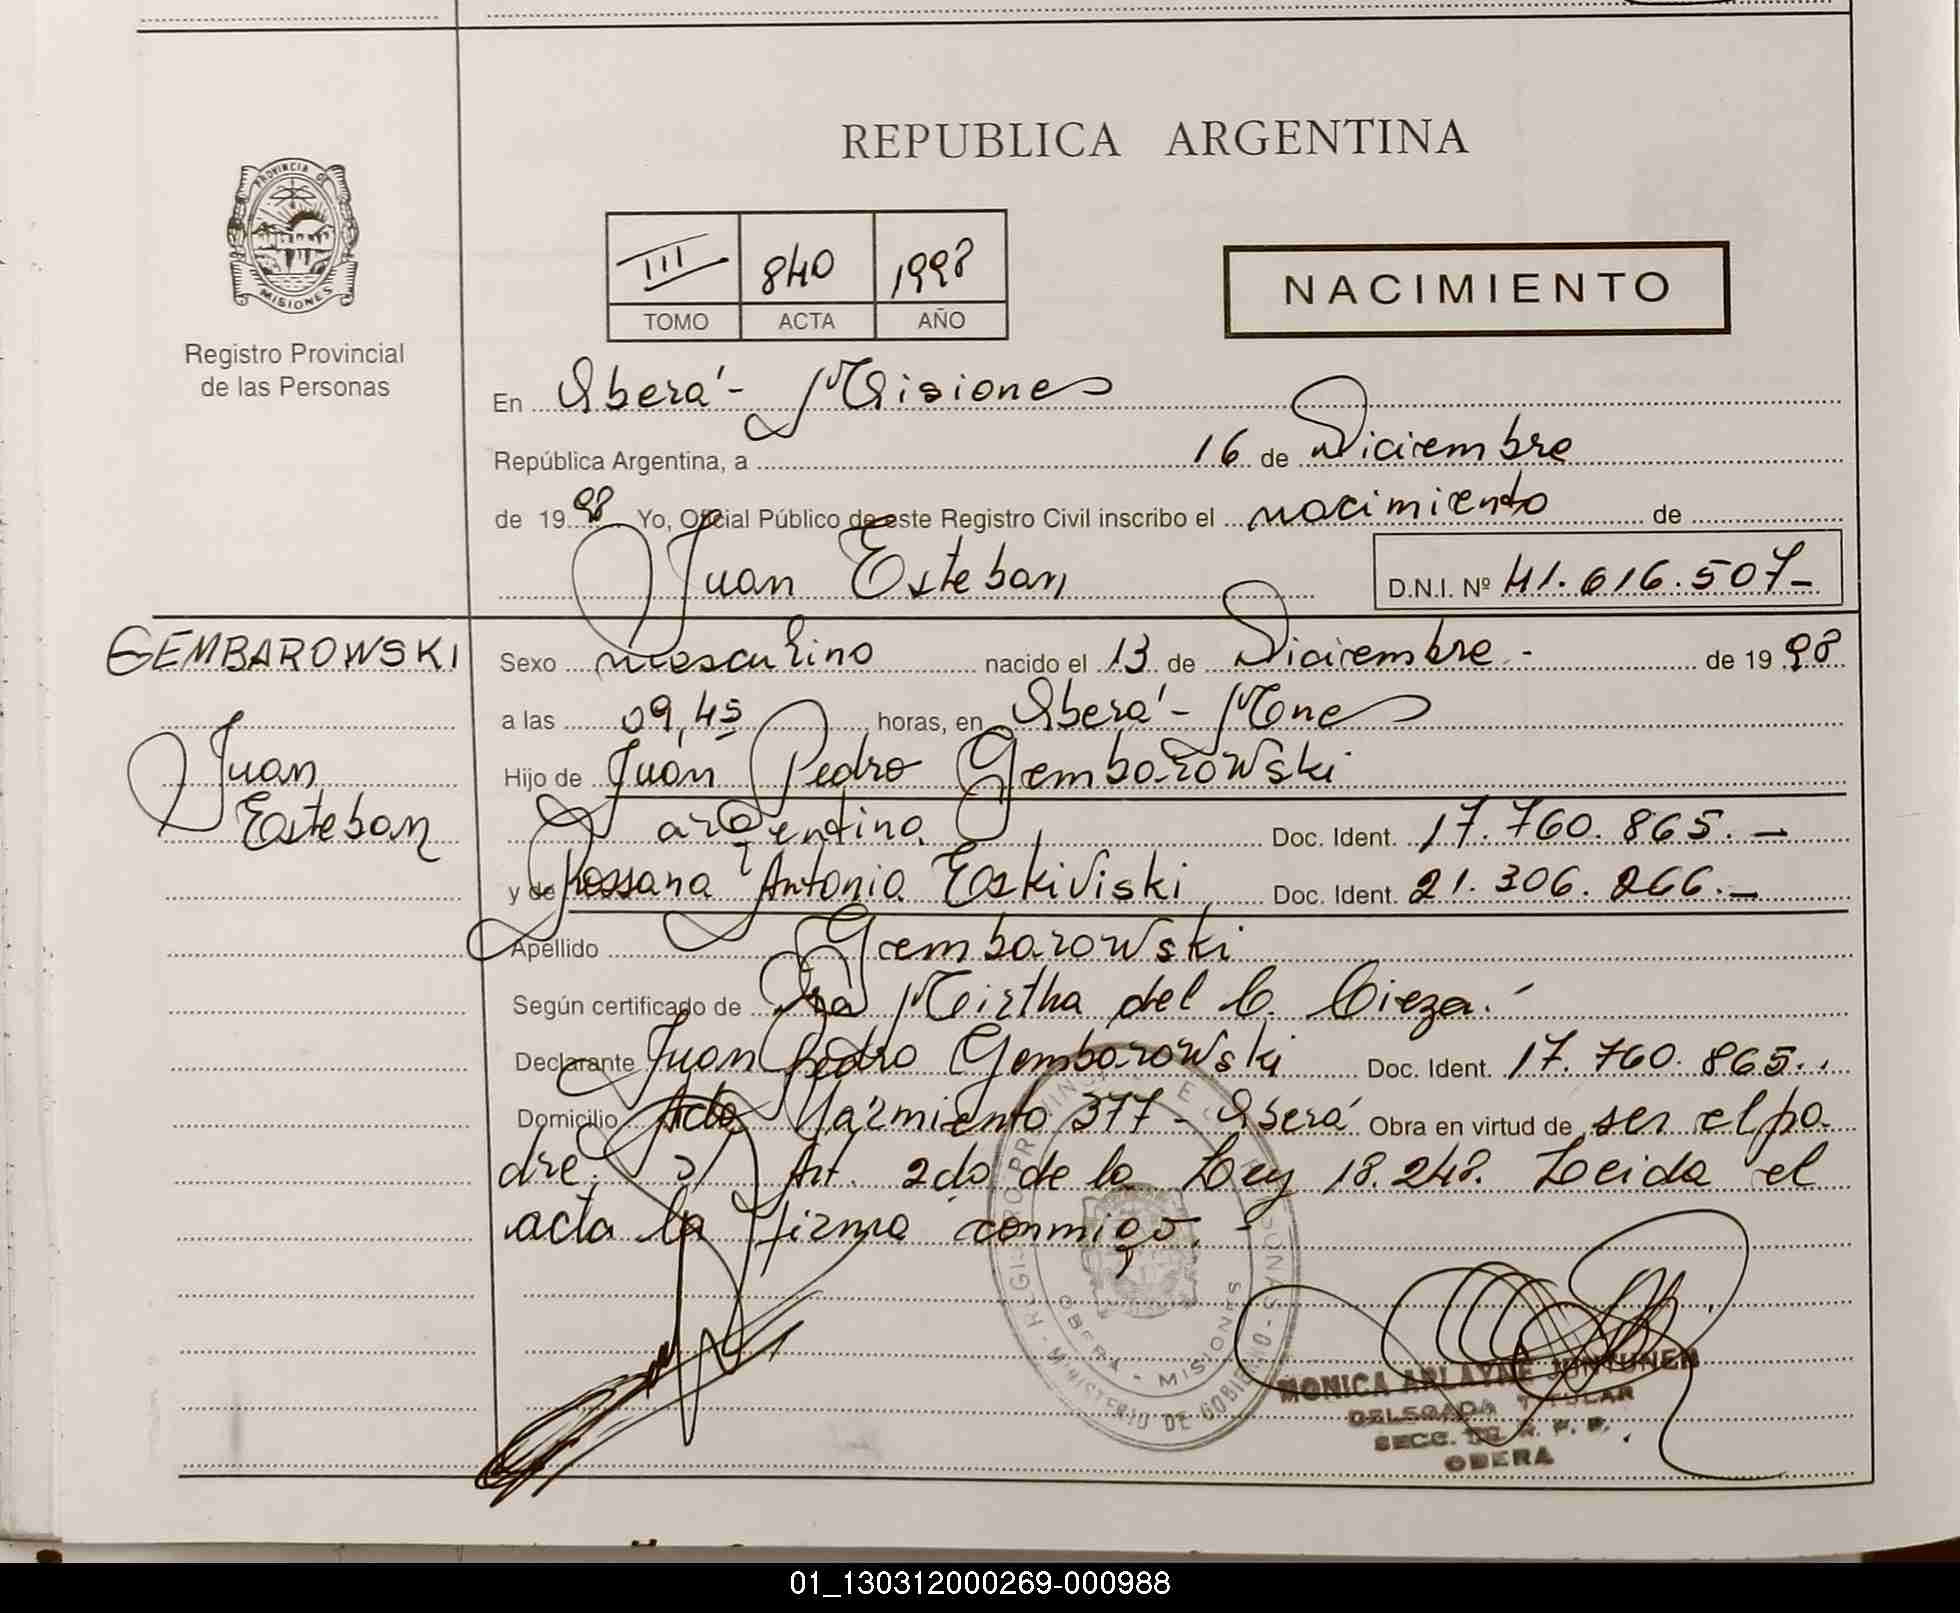 REPUBLICA ARGENTINA
PROVINCIA DE
MISIONES
Registro Provincial
de las Personas
III 840 1998
TOMO ACTA AÑO
NACIMIENTO
En Oberá - Misiones
República Argentina, a 16 de Diciembre
de 19 98 Yo, Oficial Público de este Registro Civil inscribo el nacimiento de
Juan Esteban D.N.I. Nº 41.616.507-
GEMBAROWSKI
Juan
Esteban
Sexo masculino nacido el 13 de Diciembre - de 19 98
a las 09,45 horas, en Oberá - Mnes
Hijo de Juan Pedro Gembarowski
argentino Doc. Ident. 17.760.865.-
y de Rossana Antonia Eskiviski Doc. Ident. 21.306.266.-
Apellido Gembarowski
Según certificado de Dra Mirtha del C. Cieza.-
Declarante Juan Pedro Gembarowski Doc. Ident. 17.760.865..
Domicilio Acta Sarmiento 377 - Oberá Obra en virtud de ser el pa-
dre. Art. 2do de la Ley 18.248. Leida el
acta la firma conmigo. -
REGISTRO PROVINCIAL DE LAS PERSONAS - MINISTERIO DE GOBIERNO -
OBERA - MISIONES
MONICA ARLAYNE JUNTUNEN
DELEGADA TITULAR
SECC. DE R. P. P.
OBERA
01_130312000269-000988